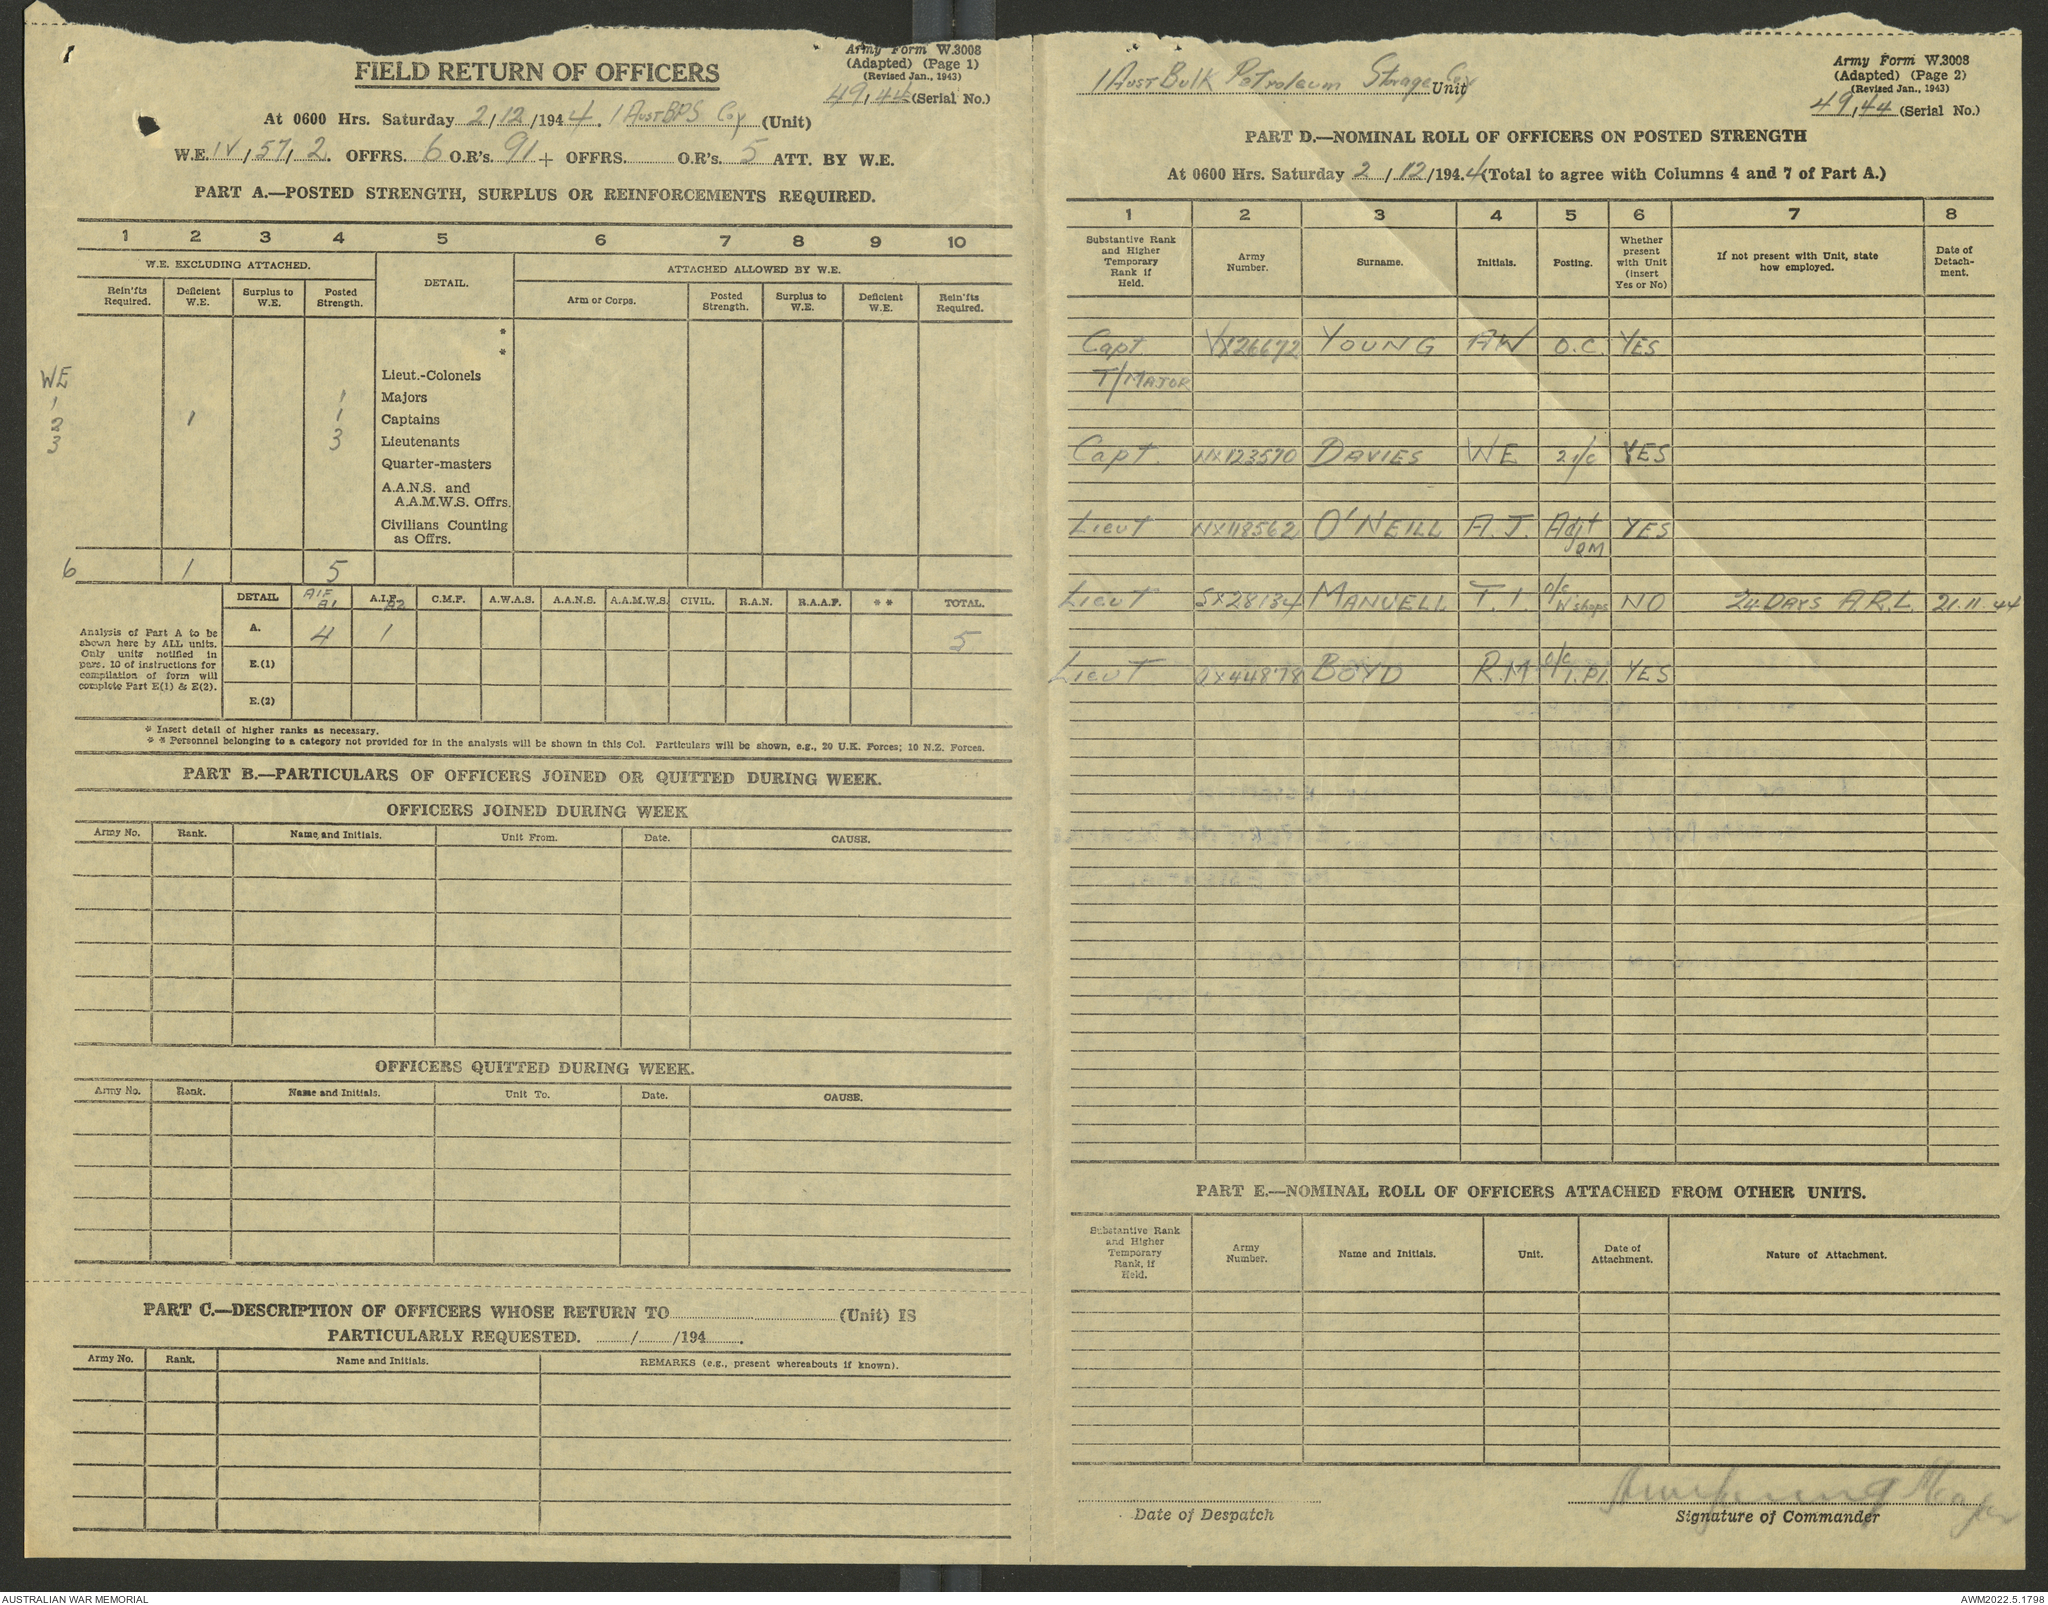 Army Form W.3008
(Adapted) (Page 1)
(Revised Jan., 1943)
FIELD RETURN OF OFFICERS
49,44 (Serial No.)
At 0600 Hrs. Saturday 2/12/1944. 1 Aust BPS Coy (Unit)
W.E. IV, 57, 2. OFFRS. 6 O.R's. 91 + OFFRS. O.R's. 5 ATT. BY W.E.
PART A.—POSTED STRENGTH, SURPLUS OR REINFORCEMENTS REQUIRED.
1 2 3 4 5 6 7 8 9 10
W.E. EXCLUDING ATTACHED. DETAIL. ATTACHED ALLOWED BY W.E.
Rein'fts Required. Deficient W.E. Surplus to W.E. Posted Strength. Arm or Corps. Posted Strength. Surplus to W.E. Deficient W.E. Rein'fts Required.
*
*
WE Lieut.-Colonels
1 1 Majors
2 1 1 Captains
3 3 Lieutenants
Quarter-masters
A.A.N.S. and
A.A.M.W.S. Offrs.
Civilians Counting
as Offrs.
6 1 5
DETAIL AIF A1 A.I.F. A2 C.M.F. A.W.A.S. A.A.N.S. A.A.M.W.S. CIVIL. R.A.N. R.A.A.F. * * TOTAL.
Analysis of Part A to be
shown here by ALL units.
Only units notified in
para. 10 of instructions for
compilation of form will
complete Part E(1) & E(2).
A. 4 1 5
E.(1)
E.(2)
* Insert detail of higher ranks as necessary.
* * Personnel belonging to a category not provided for in the analysis will be shown in this Col. Particulars will be shown, e.g., 20 U.K. Forces; 10 N.Z. Forces.
PART B.—PARTICULARS OF OFFICERS JOINED OR QUITTED DURING WEEK.
OFFICERS JOINED DURING WEEK
Army No. Rank. Name and Initials. Unit From. Date. CAUSE.
OFFICERS QUITTED DURING WEEK.
Army No. Rank. Name and Initials. Unit To. Date. CAUSE.
PART C.—DESCRIPTION OF OFFICERS WHOSE RETURN TO (Unit) IS
PARTICULARLY REQUESTED. / /194 .
Army No. Rank. Name and Initials. REMARKS (e.g., present whereabouts if known).
1 Aust Bulk Petroleum Storage Coy Unit
Army Form W.3008
(Adapted) (Page 2)
(Revised Jan., 1943)
49,44 (Serial No.)
PART D.—NOMINAL ROLL OF OFFICERS ON POSTED STRENGTH
At 0600 Hrs. Saturday 2/12/194.4 (Total to agree with Columns 4 and 7 of Part A.)
1 2 3 4 5 6 7 8
Substantive Rank and Higher Temporary Rank if Held. Army Number. Surname. Initials. Posting. Whether present with Unit (insert Yes or No) If not present with Unit, state how employed. Date of Detach-ment.
Capt VX126672 YOUNG AW O.C. YES
T/MAJOR
Capt. NX123570 DAVIES WE 2i/c YES
Lieut NX118562 O'NEILL A.J. Adjt QM YES
Lieut SX28134 MANUELL T.I. O/C W'shops NO 24 DAYS A.R.L. 21.11.44
Lieut QX44878 BOYD R.M O/C 1.Pl. YES
PART E.—NOMINAL ROLL OF OFFICERS ATTACHED FROM OTHER UNITS.
Substantive Rank and Higher Temporary Rank, if Held. Army Number. Name and Initials. Unit. Date of Attachment. Nature of Attachment.
Date of Despatch
Signature of Commander
AUSTRALIAN WAR MEMORIAL
AWM2022.5.1798